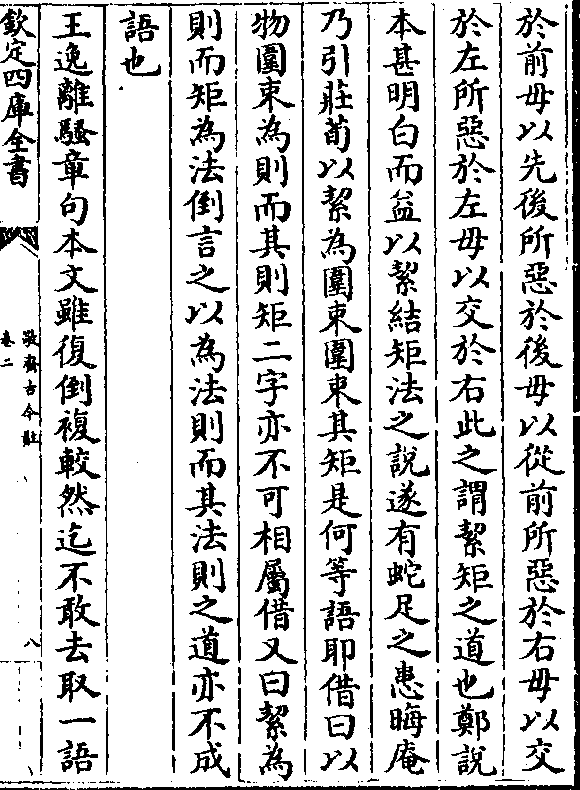 於前毋以先後所惡於後毋以從前所惡於右毋以交
於左所惡於左毋以交於右此之謂絜矩之道也鄭說
本甚明白而益以絜結矩法之說遂有蛇足之患晦庵
乃引莊荀以絜為圍束圍束其矩是何等語耶借曰以
物圍束為則而其則矩二字亦不可相屬借又曰絜為
則而矩為法倒言之以為法則而其法則之道亦不成
語也
王逸離騷章句本文雖復倒複較然迄不敢去取一語
欽定四庫全書
敬齋古今黈
卷二
八